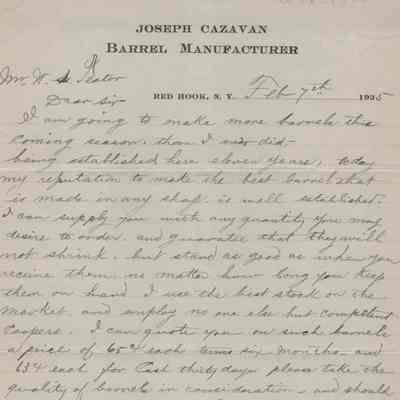 JOSEPH CAZAVAN
BARREL MANUFACTURER
Mr. W. S. Teator
RED HOOK, N. Y. Feb 7th 1925
Dear Sir
I am going to make more barrels this
coming season, than I ever did-
being established here eleven years, today
my reputation to make the best barrel that
is made in any shop, is well established.
I can supply you with any quantity you may
desire to order, and guarantee that they will
not shrink, but stand as good as when you
receive them, no matter how long you keep
them on hand I use the best stock on the
market, and employ no one else but competent
coopers. I can quote you on such barrels
a price of 65¢ each terms six months and
63¢ each for Cash thirty days please take the
quality of barrels in consideration and should